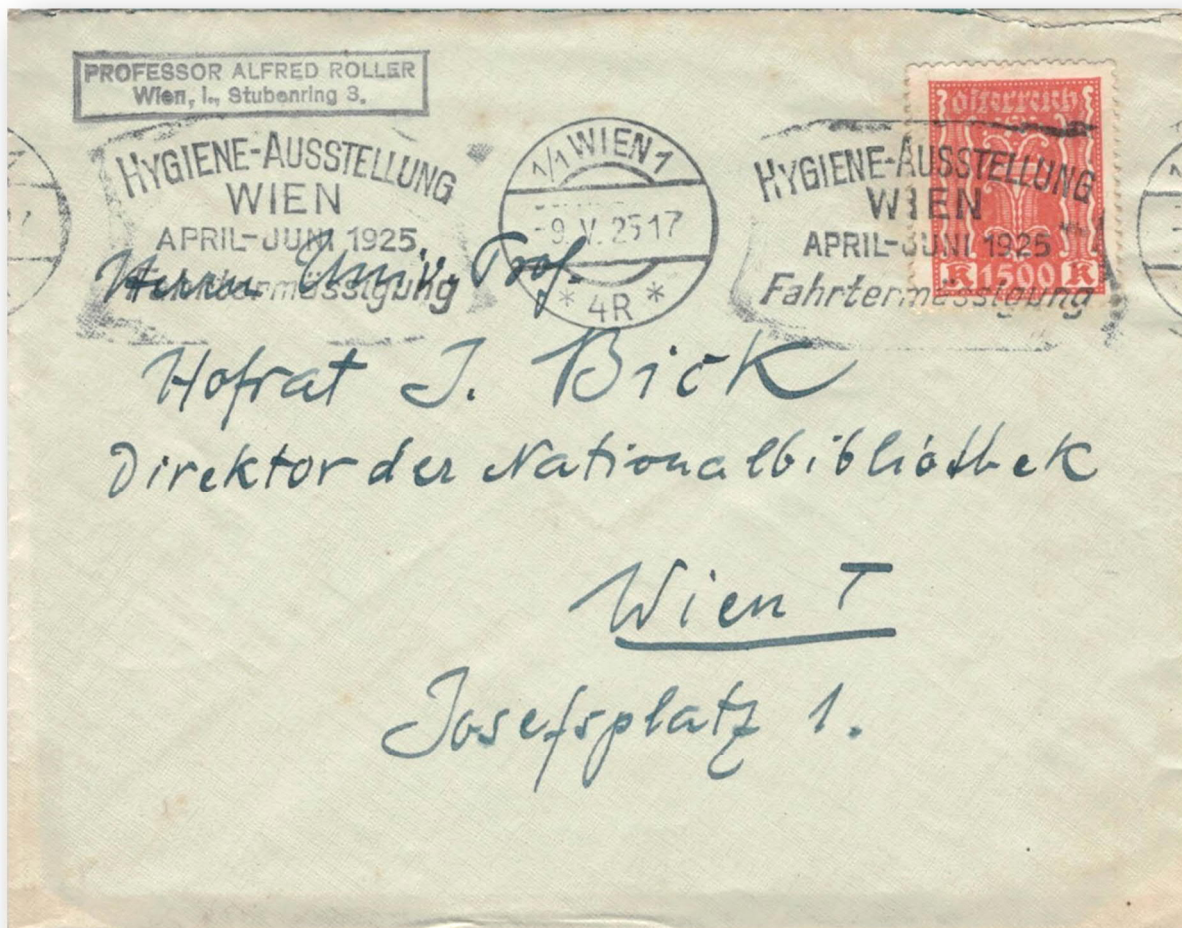 PROFESSOR ALFRED ROLLER
Wien, I., Stubenring 3.
HYGIENE-AUSSTELLUNG
WIEN
APRIL-JUNI 1925
Fahrtermässigung
1/1 WIEN 1
-9. V. 25 17
* 4R *
HYGIENE-AUSSTELLUNG
WIEN
APRIL-JUNI 1925
Fahrtermässigung
Österreich
K 1500 K
Herrn Univ. Prof.
Hofrat J. Bick
Direktor der Nationalbibliothek
Wien I
Josefsplatz 1.